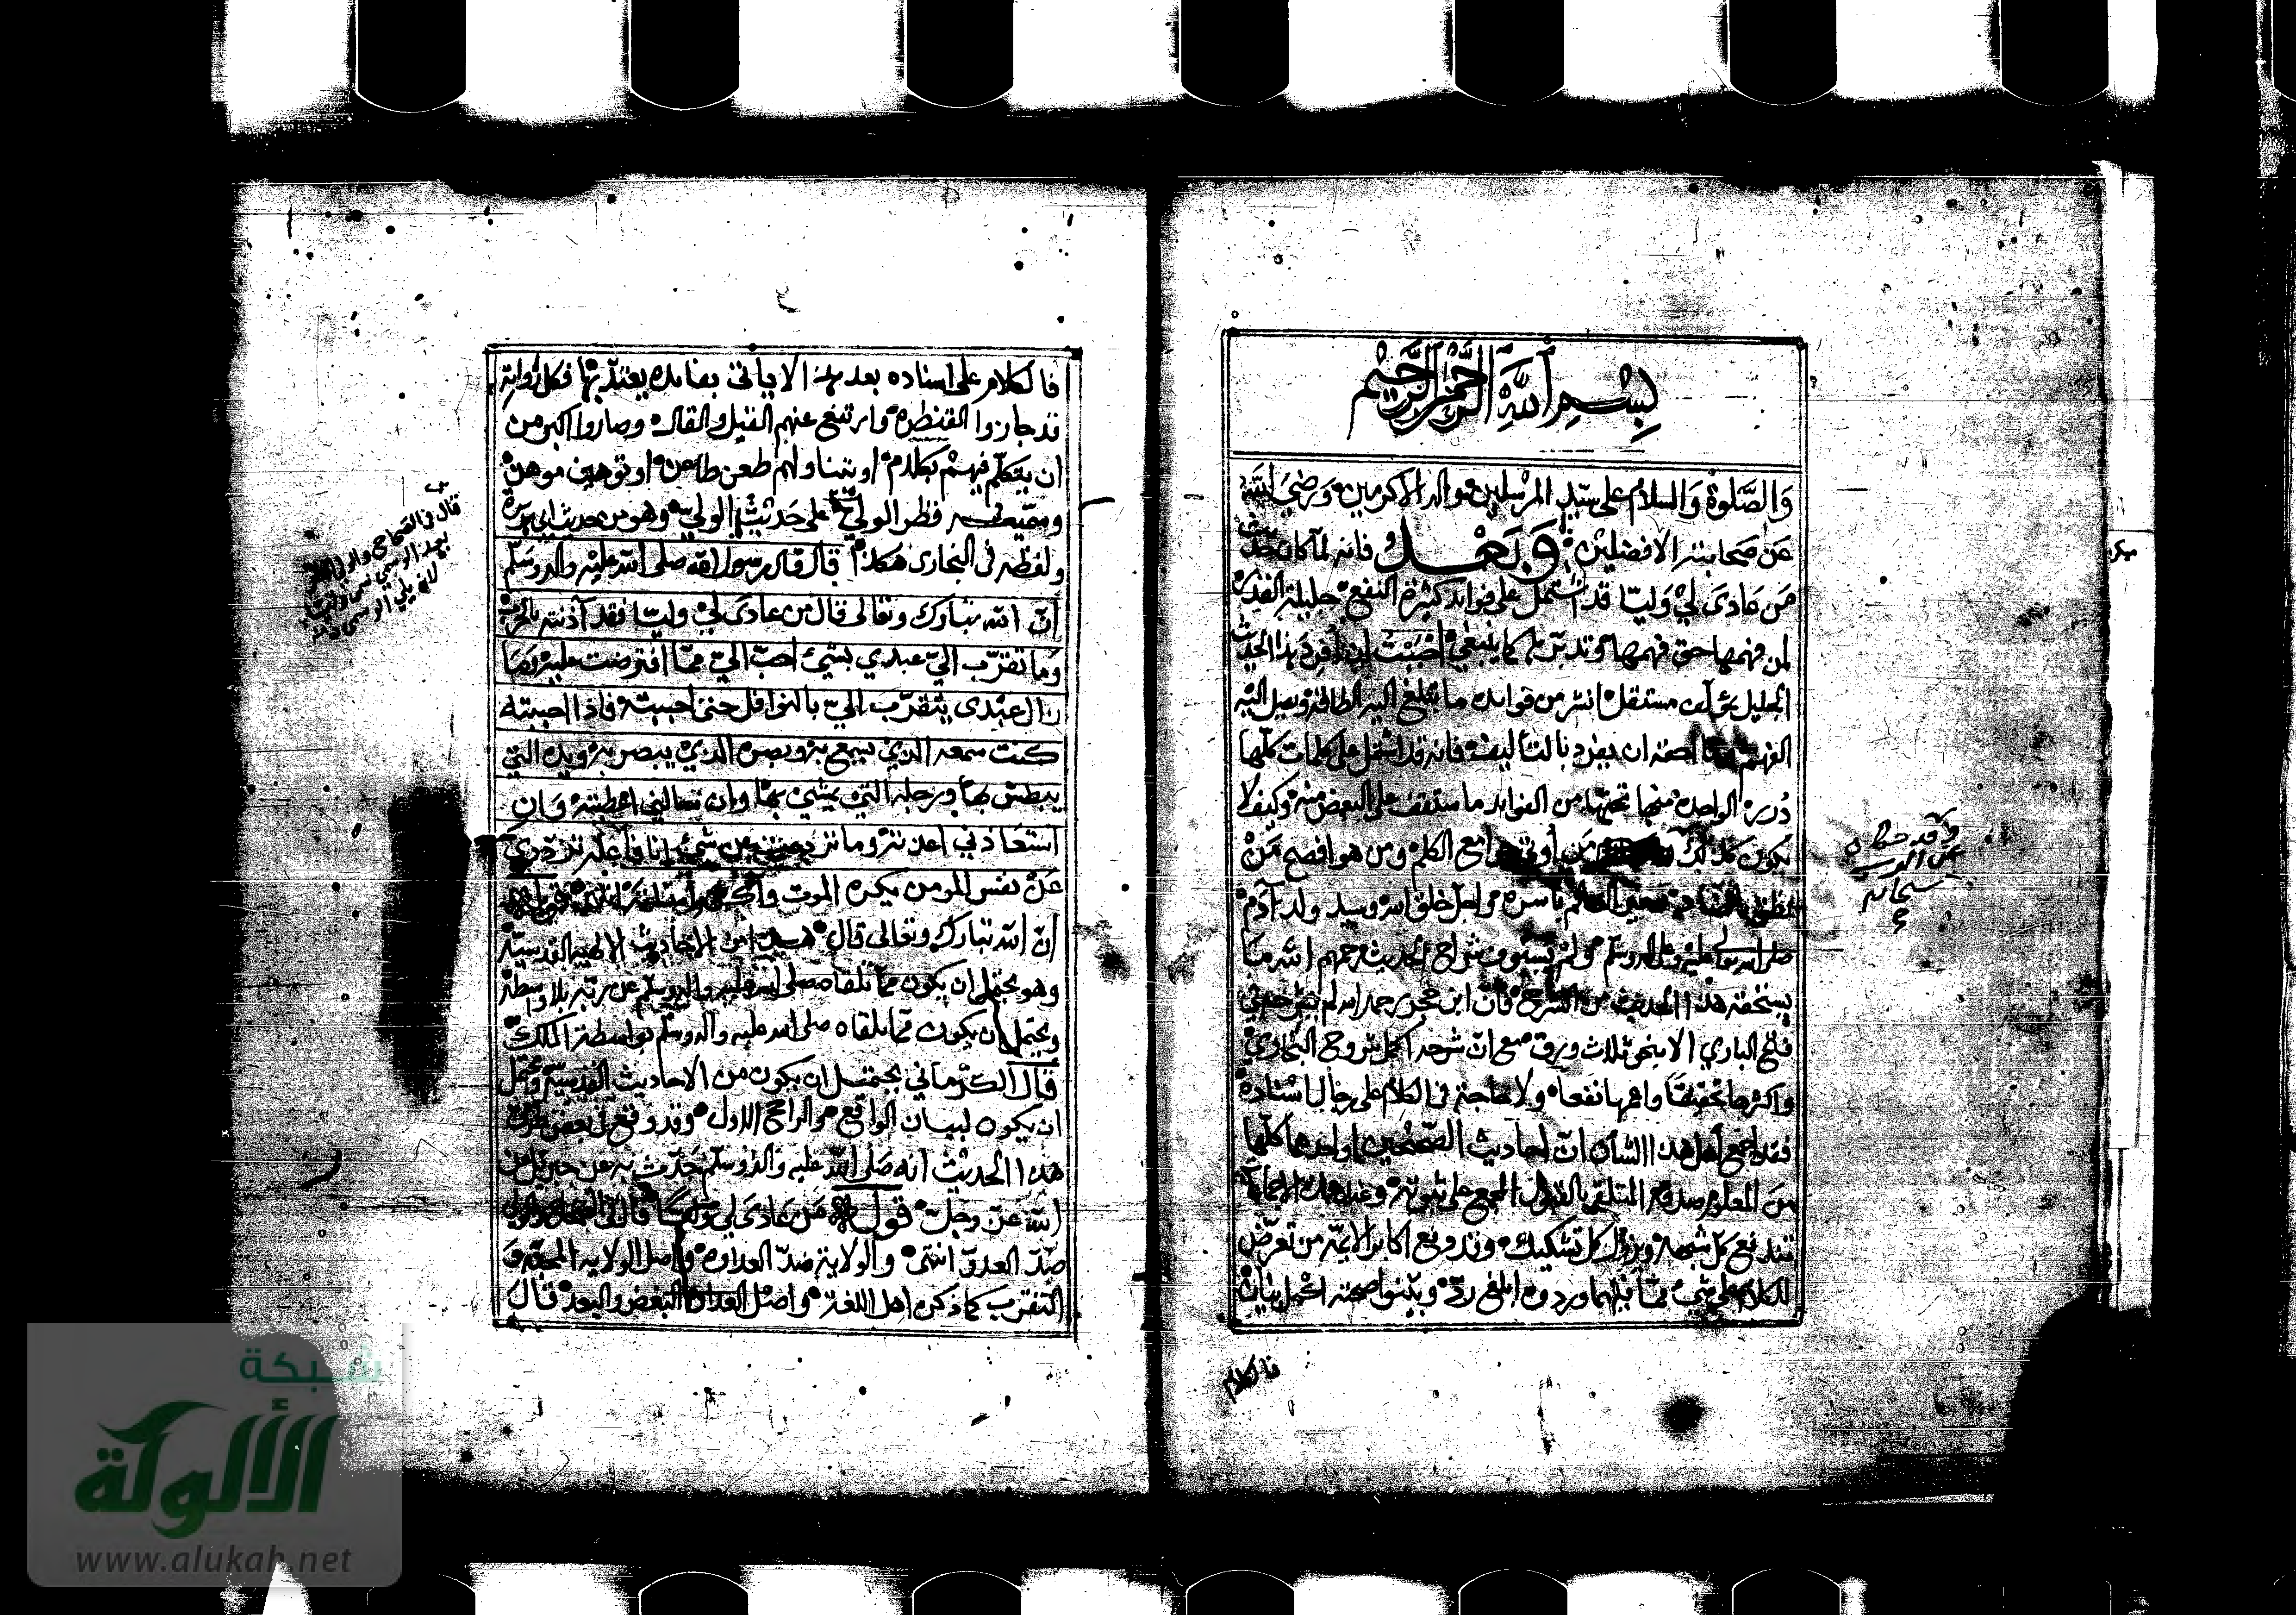 بسم الله الرحمن الرحيم
والصلوة والسلام على سيد المرسلين واله الاكرمين ورضي الله
عن صحابته الافضلين وبعد فانه لما كان حديث
من عادى لي وليا قد اشتمل على فوايد كثيرة النفع جليلة القدر
لمن فهمها حق فهمها وتدبرها كما ينبغي احببت ان افرد هذا الحديث
الجليل بمؤلف مستقل انشر من فوايده ما تبلغ اليه الطاقة ويصل اليه
الفهم وما احقه ان يفرد بالتأليف فانه قد اشتمل على كلمات كلها
درر الواحدة منها تحتها من الفوايد ما ستقف على البعض منه وكيف لا
يكون كذلك من أوتي جوامع الكلم ومن هو افصح من
نطق بالضاد باسره واجل خلق الله وسيد ولد آدم
صلى الله عليه وعلى اله وسلم ولم يستوف شراح الحديث رحمهم الله ما
يستحقه هذا الحديث من الشرح فان ابن حجر رحمه الله لم يشرحه في
فتح الباري الا بنحو ثلاث ورق مع ان شرحه اكمل شروح البخاري
واكثرها تحقيقا واعمها نفعا ولا حاجة في الكلام على رجال اسناده
فقد اجمع اهل هذا الشأن ان احاديث الصحيحين او احدهما كلها
من المعلوم صدقه المتلقى بالقبول المجمع على ثبوته وعند هذه الاجماعات
تندفع كل شبهة ويزول كل تشكيك وقد دفع اكابر الائمة من تعرض
للكلام على شيء مما فيهما وردوه ابلغ رد وبينوا صحته اكمل بيان
فالكلام
وقد حكاه
عن الرب
سبحانه
فالكلام على اسناده بعد هذا لا ياتي بفائدة يعتد بها فكل رواته
قد جازوا القنطرة وارتفع عنهم القيل والقال وصاروا اكبر من
ان يتكلم فيهم بكلام او يتناولهم طعن طاعن او توهين موهن
وسميته قطر الولي على حديث الولي وهو من حديث ابي هريرة
ولفظه في البخاري هكذا قال قال رسول الله صلى الله عليه واله وسلم
ان الله تبارك وتعالى قال من عادى لي وليا فقد آذنته بالحرب
وما تقرب الي عبدي بشيء احب الي مما افترضت عليه وما
زال عبدي يتقرب الي بالنوافل حتى احببته فاذا احببته
كنت سمعه الذي يسمع به وبصره الذي يبصر به ويده التي
يبطش بها ورجله التي يمشي بها وان سالني اعطيته وان
استعاذني اعذته وما ترددت عن شيء انا فاعله ترددي
عن نفس المومن يكره الموت واكره مساءته قوله
ان الله تبارك وتعالى قال هذا من الاحاديث الالهية القدسية
وهو يحتمل ان يكون مما تلقاه صلى الله عليه واله وسلم عن ربه بلا واسطة
ويحتمل ان يكون مما تلقاه صلى الله عليه واله وسلم بواسطة الملك
قال الكرماني يحتمل ان يكون من الاحاديث القدسية ويحتمل
ان يكون لبيان الواقع والراجح الاول وقد وقع في بعض طرق
هذا الحديث انه صلى الله عليه واله وسلم حدث به عن جبريل عن
الله عز وجل قوله من عادى لي وليا قال في الصحاح والولي
ضد العدو انتهى والولاية ضد العداوة واصل الولاية المحبة و
التقرب كما ذكره اهل اللغة واصل العداوة البغض والبعد قال
قال في الصحاح
بعد الوسمي
شبكة
الألوكة
www.alukah.net